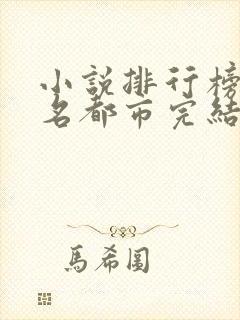 小説排行榜
名都市完結
馬希圖